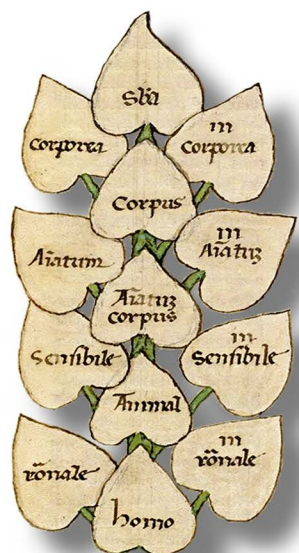 Sba
corporea
in
corporea
Corpus
Aiatum
in
Aiatuz
Aiatuz
corpus
Sensibile
in
Sensibile
Animal
rōnale
in
rōnale
homo